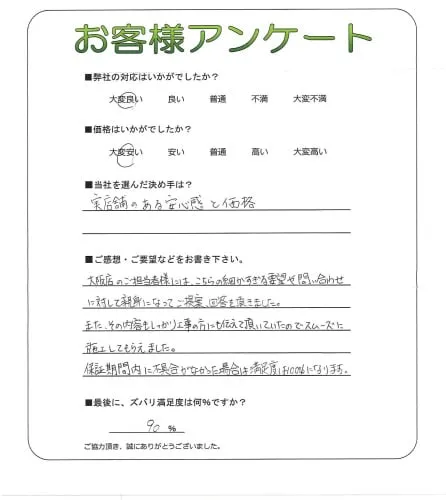 お客様アンケート
■弊社の対応はいかがでしたか？
大変良い 良い 普通 不満 大変不満
■価格はいかがでしたか？
大変安い 安い 普通 高い 大変高い
■当社を選んだ決め手は？
実店舗のある安心感と価格
■ご感想・ご要望などをお書き下さい。
大阪店のご担当者様には、こちらの細かすぎる要望や問い合わせ
に対して親身になってご提案、回答を頂きました。
また、その内容もしっかり工事の方にも伝えて頂いていたのでスムーズに
施工してもらえました。
保証期間内に不具合がなかった場合は満足度は100%になります。
■最後に、ズバリ満足度は何％ですか？
90 %
ご協力頂き、誠にありがとうございました。